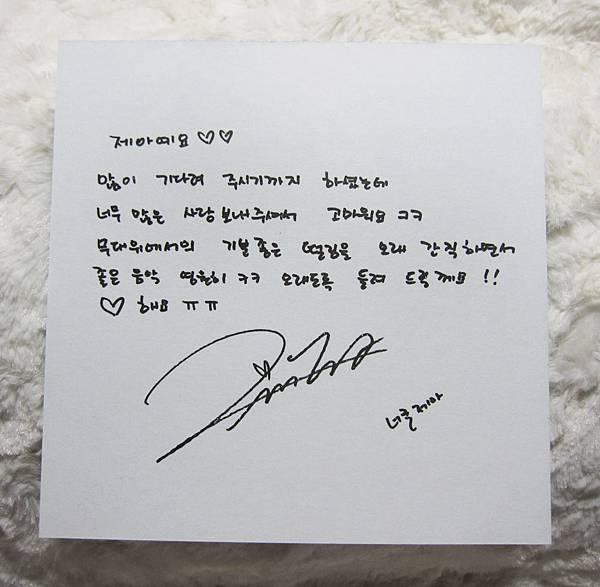 제아예요 ♡♡
많이 기다려 주시기까지 하셨는데
너무 많은 사랑 보내주셔서 고마워요 ㅋㅋ
무대위에서의 기분 좋은 떨림을 오래 간직하면서
좋은 음악 영원히 ㅋㅋ 오래도록 들려 드릴께요 !!
♡ 해요 ㅠㅠ
제아